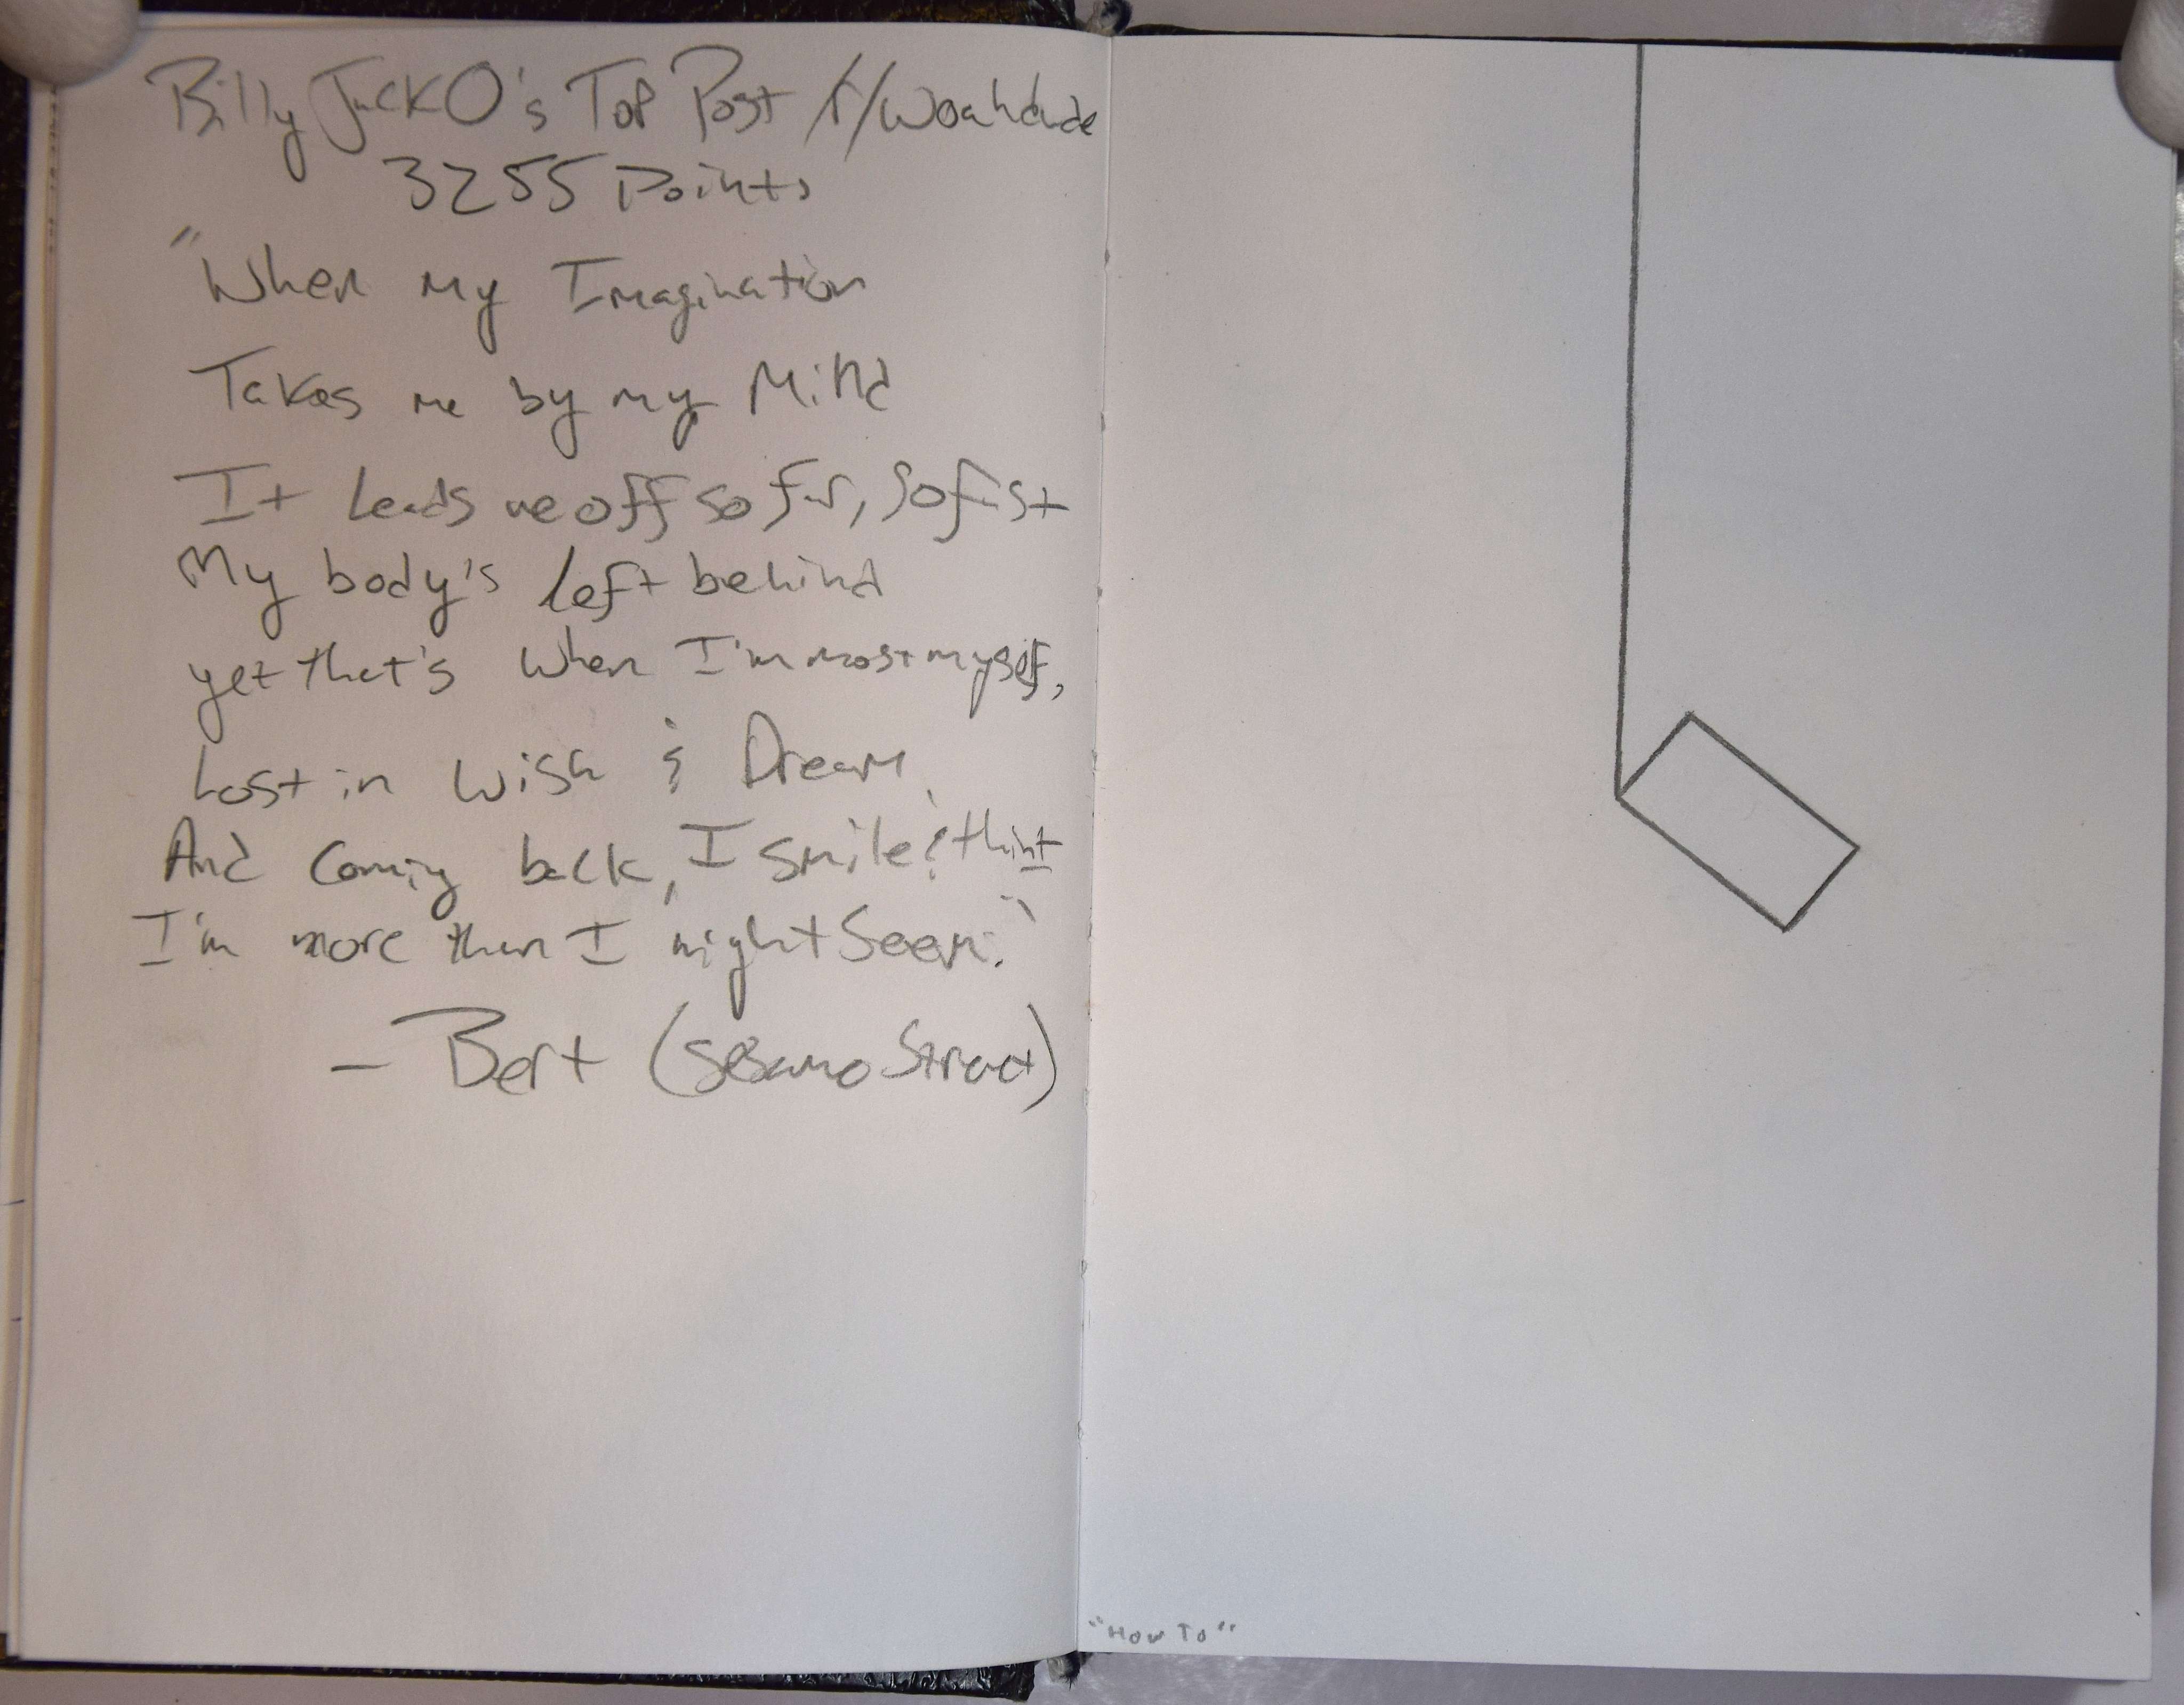 Billy JackO's Top Post /r/woahdude
3255 Points
"When my Imagination
Takes me by my Mind
It leads me off so far, so fast
My body's left behind
yet that's when I'm most myself,
Lost in wish & Dream
And coming back, I smile & think
I'm more than I might seem."
- Bert (Sesame Street)
"HOW TO"